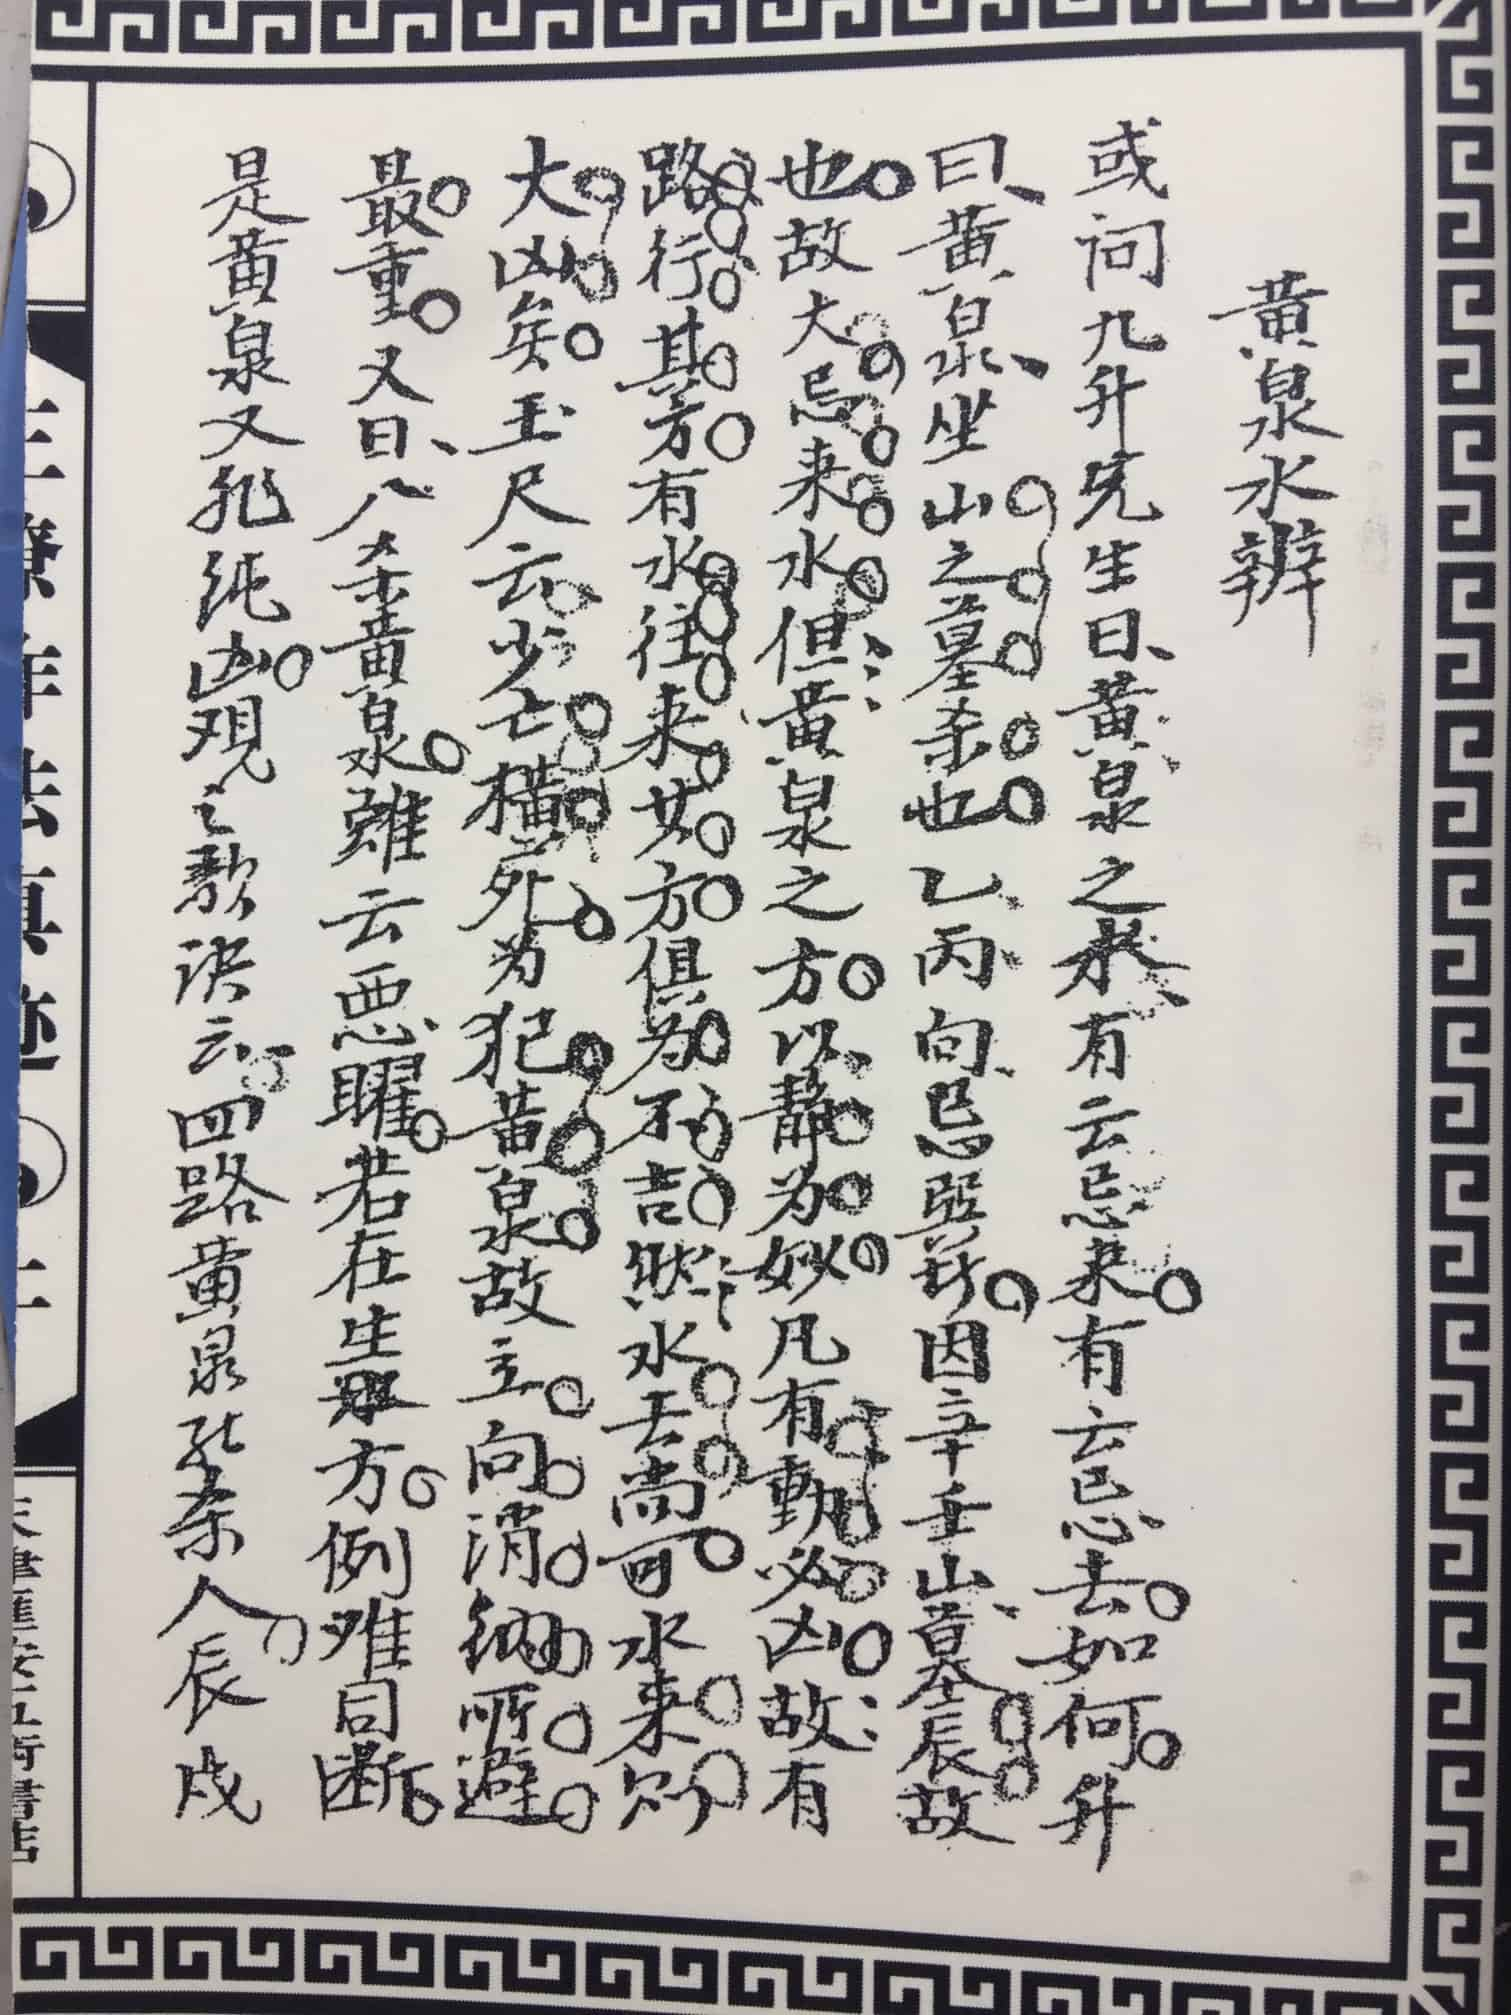 黄泉水辨
或问九升先生曰黄泉之水有云忌来有云忌去如何升
曰黄泉坐山之墓杀也乙丙向忌巽者因辛壬山墓辰故
也故大忌来水但黄泉之方以静为妙凡有動必凶故有
路行其方有水往来其方俱为不吉然水去尚可水来则
大凶矣玉尺云少亡横死为犯黄泉故立向消纳所避
最重又曰八杀黄泉雖云恶曜若在生方例难同断
是黄泉又非纯凶观之歌诀云四路黄泉能杀人辰戌